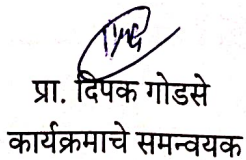 प्रा. दिपक गोडसे
कार्यक्रमाचे समन्वयक